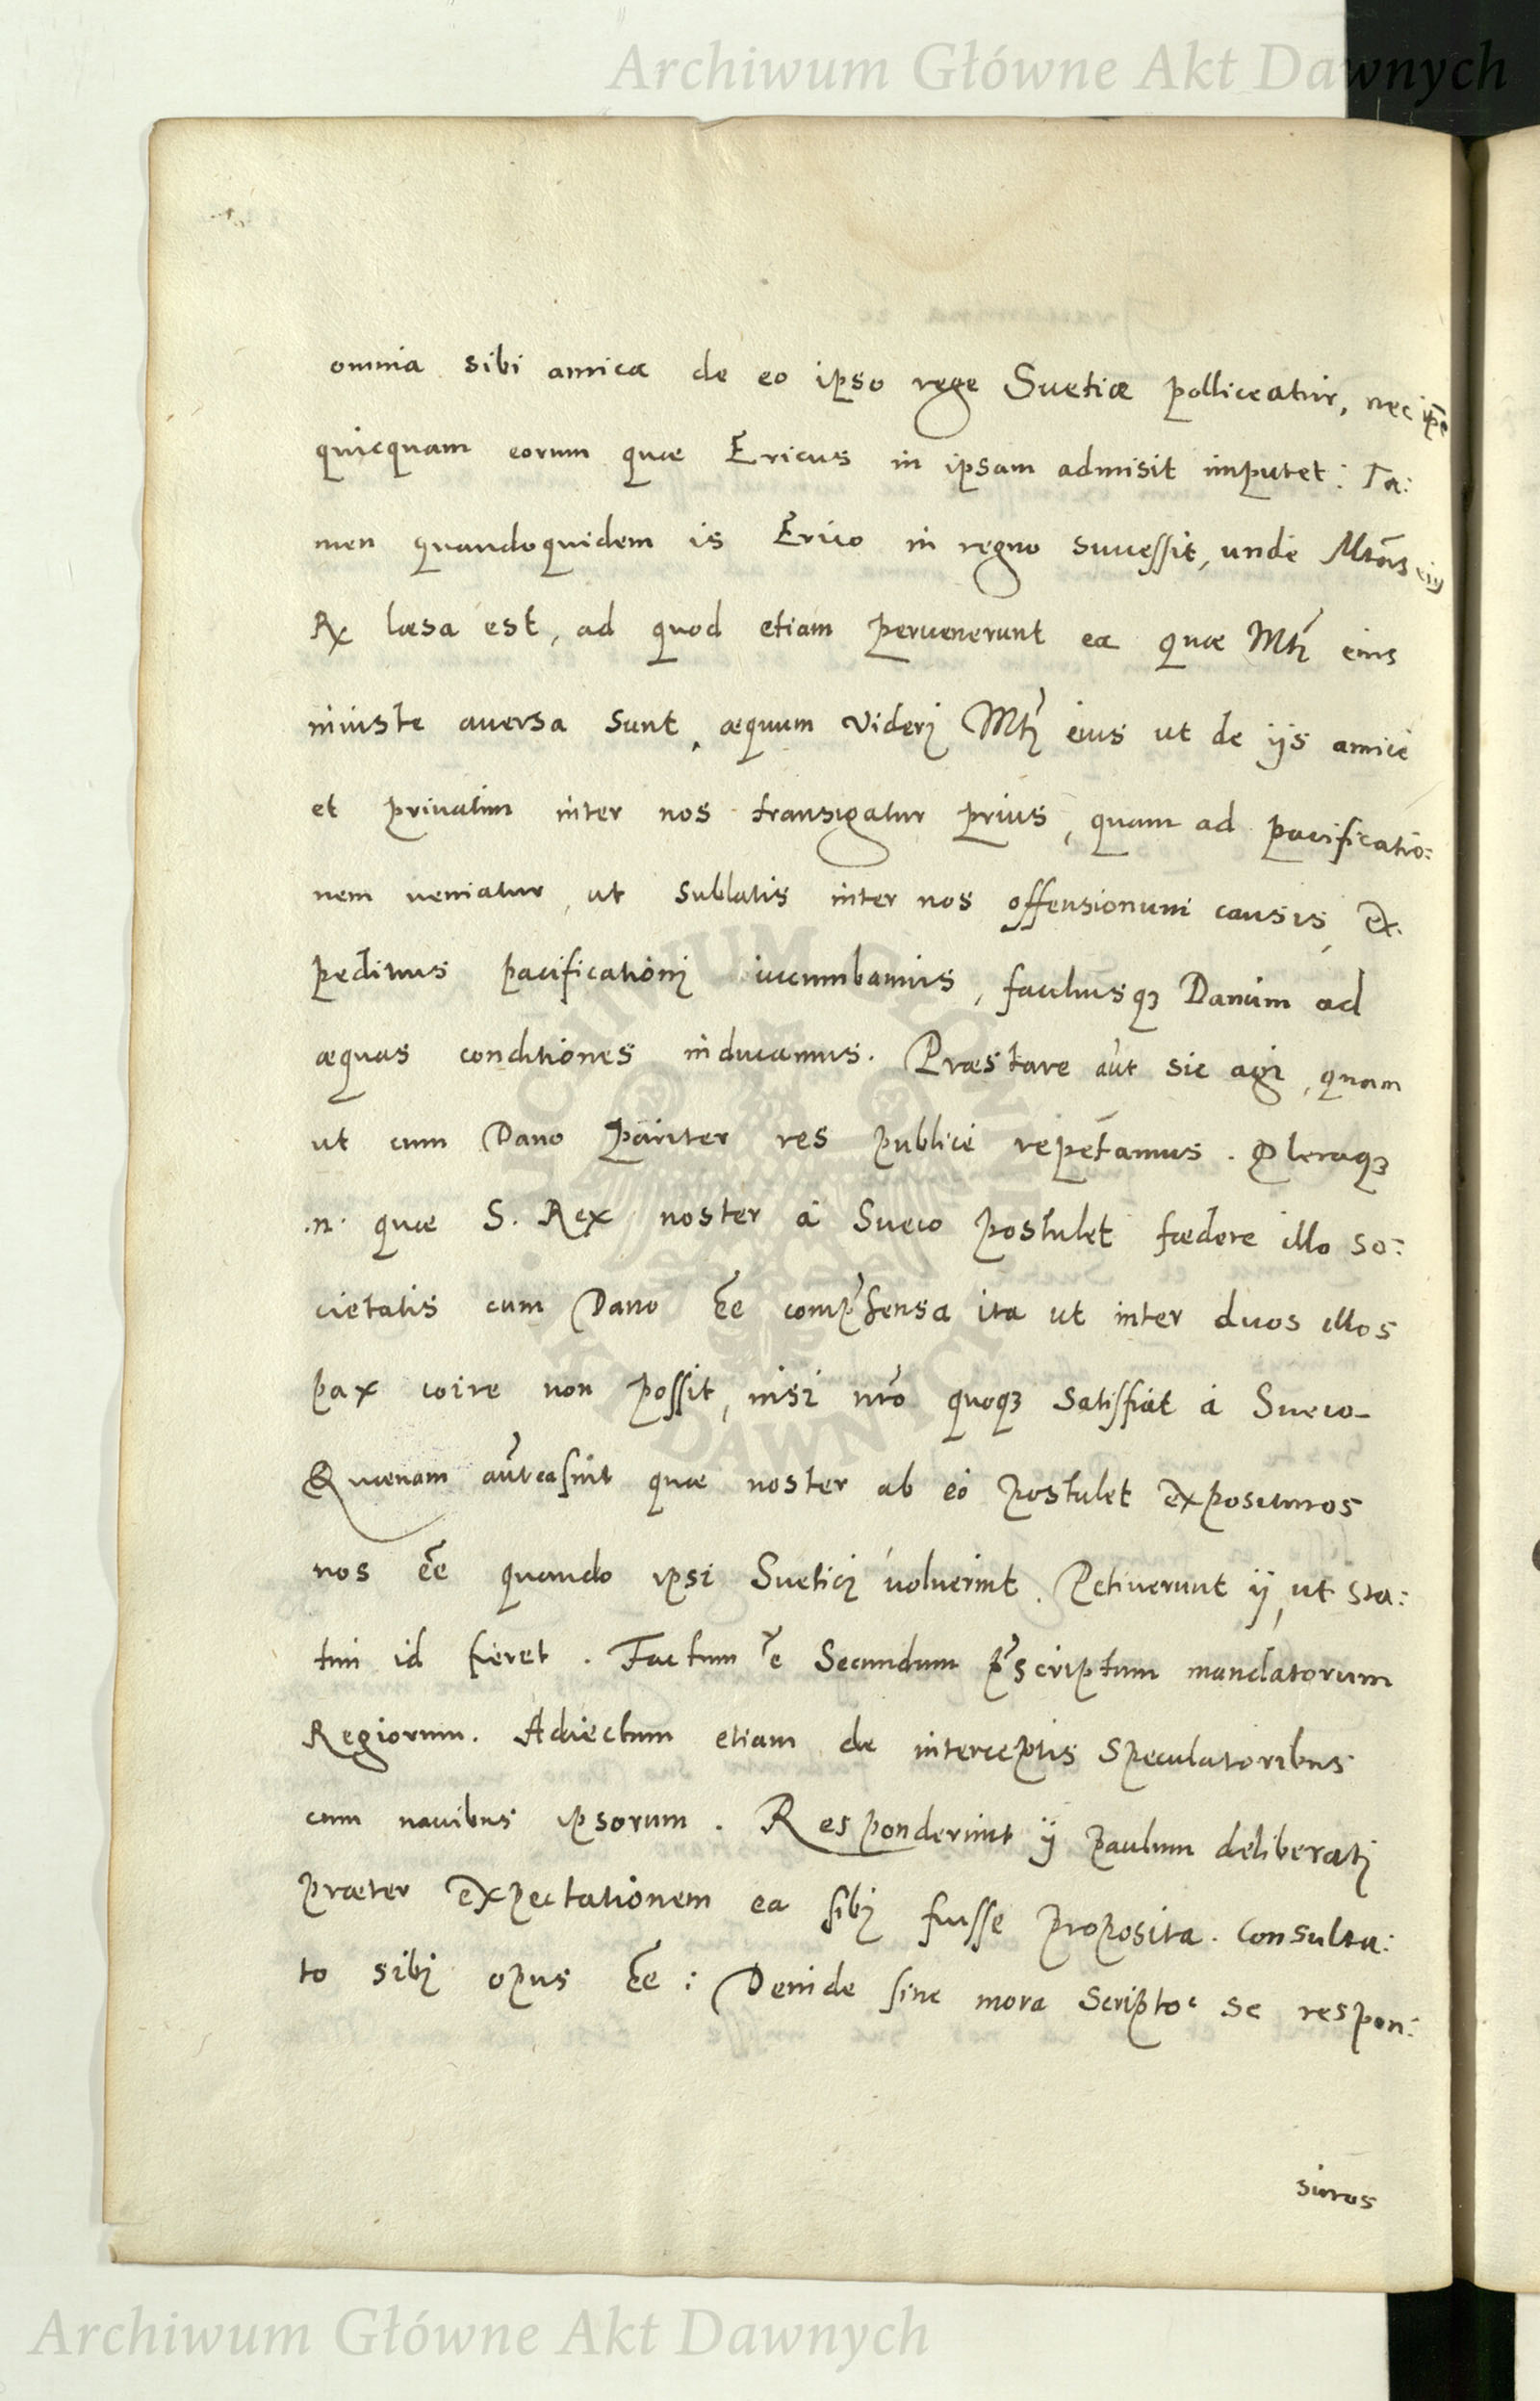 Archiwum Główne Akt Dawnych
omnia sibi amica de eo ipso rege Suetiæ polliceatur, nec ip̄e
quicquam eorum quæ Ericus in ipsam admisit imputet: Ta:
men quandoquidem is Erico in regno successit, unde Mtās eiꝰ
Rx læsa est, ad quod etiam peruenerunt ea quæ Mti eius
iniuste auersa sunt, æquum videri Mti eius ut de ijs amice
et priuatim inter nos transigatur prius, quam ad pacificatio:
nem ueniatur, ut sublatis inter nos offensionum causis, ex.
peditius pacificationi incumbamus, faciliusqꝫ Danum ad
æquas conditiones inducamus. Præstare aūt sic agi, quam
ut cum Dano pariter res publicè repetamus. Pleraqꝫ
.n. quæ S. Rex noster à Sueco postulet fœdere illo so:
cietatis cum Dano ēē comp̄hensa ita ut inter duos illos
pax coire non possit, nisi nr̄o quoqꝫ satisfiat à Sueco.
Quænam aūt ea sint quæ noster ab eo postulet exposituros
nos ēē quando ipsi Suetici uoluerint. Petiuerunt ij, ut sta:
tim id fieret. Factum ē Secundum p̄scriptum mandatorum
Regiorum. Adiectum etiam de interceptis speculatoribus
cum nauibus ipsorum. Responderunt ij paulum deliberati
præter expectationem ea sibi fuisse proposita. Consulta:
to sibi opus ēē: Deinde sine mora scripto se respon:
suros
Archiwum Główne Akt Dawnych
ARCHIWUM GŁÓWNE
AKT DAWNYCH